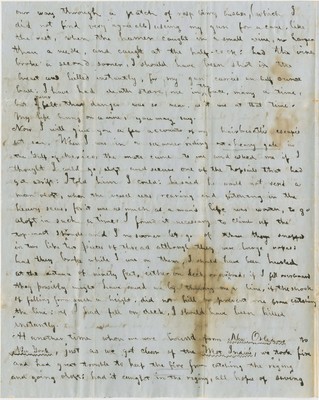 our way through a patch of very thorny bushes, (which I
did not find very agreeable,) using my gun for a cane,
the act, when the hammer caught in a small vine, no larger
than a needle, and caught at the half-cock: had the vine
broke a second sooner, I should have been shot in the
breast and killed instantly, for my gun carries an half ounce
load. I have had death stare me in my face, many a time,
but I felt that danger was so near to me at that time.
My life hung on a vine, you may say.
Now I will give you a few accounts of my hairbreadth escapes
at sea. When I was in a schooner riding out a heavy gale in
the Gulf of Mexico, the mate came to me and asked me if I
thought I could go aloft and secure one of the Topsails that had
got adrift: I told him I could: he said he would not send a
man aloft, when the vessel was rearing and pitching in the
heavy seas, for it was as much as a man's life was worth, to go
aloft in such a time. I found it necessary to climb up the
top-mast Shrouds, and I no sooner let go of them than they snapped
in two like two pieces of thread although they were heavy ropes:
had they broke while I was on them, I should have been hurled
at the distance of ninety feet, either on deck or overboard: if I fell overboard
they possibly might have saved me by throwing me a line, if the shock
of falling from such a height, did not kill me or prevent me from catching
the line: if I had fell on deck, I should have been killed
instantly.
At another time when we was bound from New Orleans to
New York, just as we got clear of the Mts. Indies, we took fire
and had great trouble to keep the fire from catching the rigging
and going aloft: had it caught in the rigging, all hopes of saving